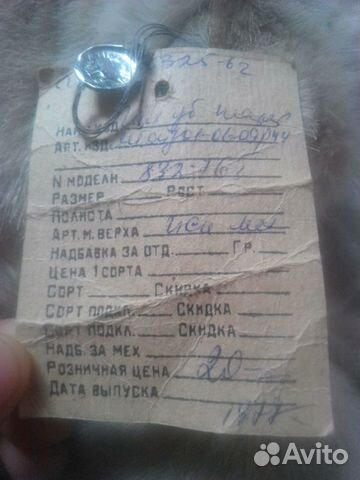 325-62
АРТ. ИЗД.
N МОДЕЛИ 832-76г
РАЗМЕР РОСТ
ПОЛНОТА
АРТ. М. ВЕРХА иск мех
НАДБАВКА ЗА ОТД. ГР.
ЦЕНА 1 СОРТА
СОРТ СКИДКА
СОРТ ПОДКЛ. СКИДКА
СОРТ ПОДКЛ. СКИДКА
НАДБ. ЗА МЕХ
РОЗНИЧНАЯ ЦЕНА 20
ДАТА ВЫПУСКА
1977г.
Avito